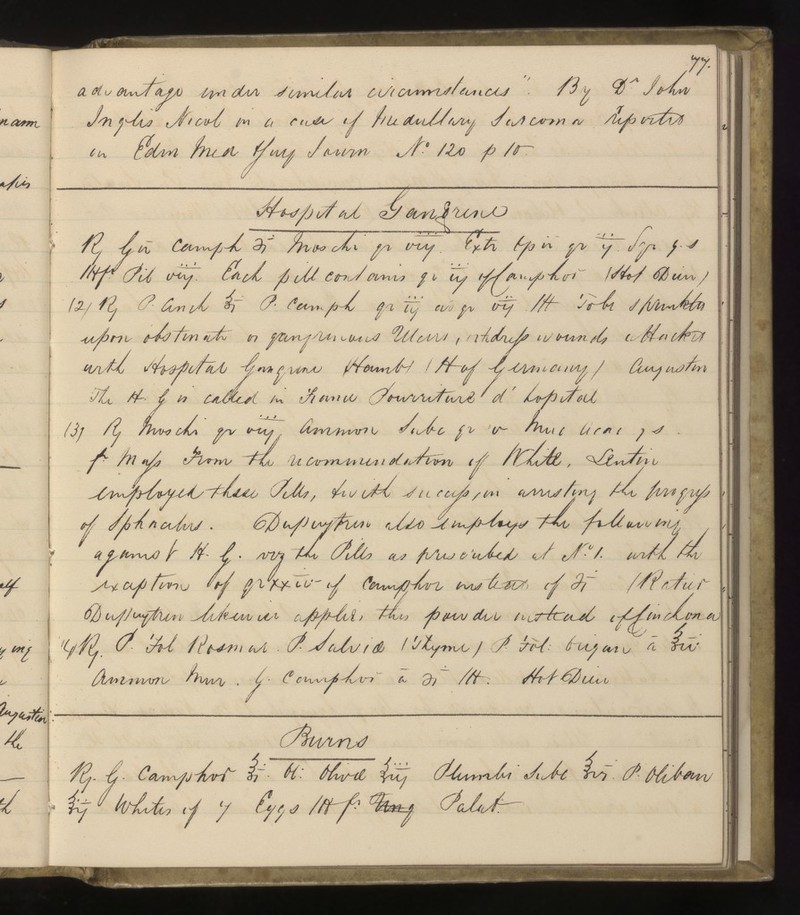 77.
advantage under similar circumstances". By Dr John
Inglis Nicol in a case of Medullary Sarcoma reported
in Edin Med & Surg Journ No 120 p 10
Hospital Gangrene
℞ Gū Camph ʒi Moschi gr viij Extr Opii gr ij Syr q.s
Ft Pil viij. Each pill contains gr iij of Camphor (Hot Dieu)
(2) ℞ P. Cinch ℥i P. Camph gr iij ad gr vij M To be sprinkled
upon obstinate or gangrenous Ulcers, to dress wounds attacked
with Hospital Gangrene Hamb (H of Germany) Augustin
The H G is called in France Pourriture d' hopital
(3) ℞ Moschi gr viij, Ammon Subc gr v Muc Acac q s
ft Mass From the recommendation of White, Lentin
employed these Pills, with success, in arresting the progress
of Sphacelus. Dupuytren also employs the following
against H. G. viz the Pills as prescribed at No 1. with the
exception of gr xxiv of Camphor instead of ʒi (Ratier
Dupuytren likewise applies this powder instead of Cinchona
(4) ℞. P. Fol Rosmar P. Salviæ (Thyme) P. Fol: Origan ā ℥iv
Ammon Mur. G. Camphor ā ʒi M. Hot Dieu
Burns
℞. G. Camphor ℥i. Ol: Olivæ ℥iij Plumbi Subc ℥vi. P. Oliban
℥ij Whites of 7 Eggs M ft Ung Palat.
nam
elf
ying
Augustin
the
th